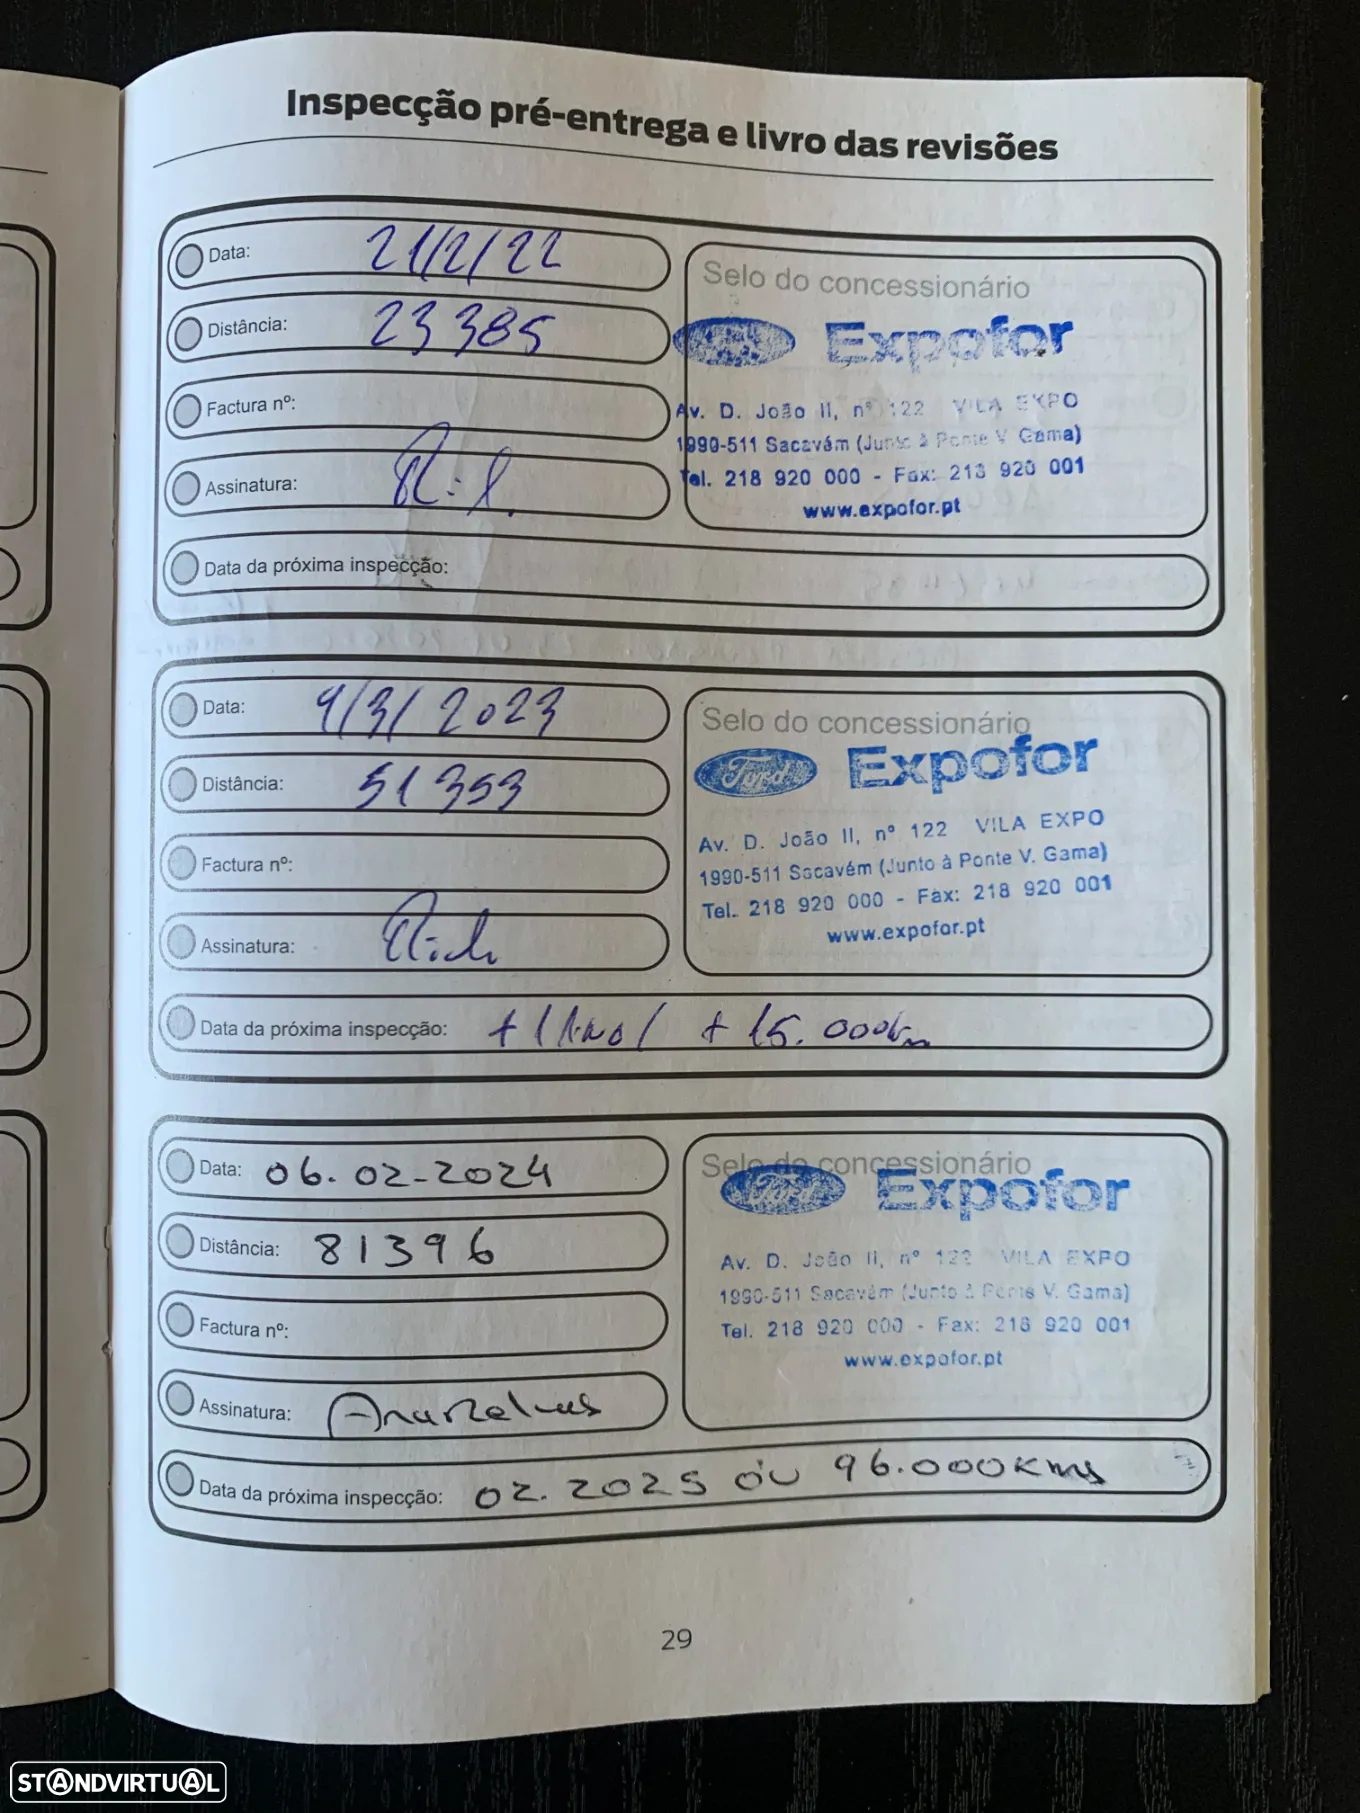 Inspecção pré-entrega e livro das revisões
Data: 21/2/22
Distância: 23 385
Factura nº:
Assinatura:
Data da próxima inspecção:
Selo do concessionário
Expofor
Av. D. João II, nº 122 VILA EXPO
1990-511 Sacavém (Junto à Ponte V. Gama)
Tel. 218 920 000 - Fax: 218 920 001
www.expofor.pt
Data: 9/3/2023
Distância: 51 353
Factura nº:
Assinatura:
Data da próxima inspecção: + 1 Ano / + 15.000km
Selo do concessionário
Ford Expofor
Av. D. João II, nº 122 VILA EXPO
1990-511 Sacavém (Junto à Ponte V. Gama)
Tel. 218 920 000 - Fax: 218 920 001
www.expofor.pt
Data: 06.02-2024
Distância: 81396
Factura nº:
Assinatura:
Data da próxima inspecção: 02.2025 ou 96.000Kms
Selo do concessionário
Ford Expofor
Av. D. João II, nº 122 VILA EXPO
1990-511 Sacavém (Junto à Ponte V. Gama)
Tel. 218 920 000 - Fax: 218 920 001
www.expofor.pt
29
STANDVIRTUAL